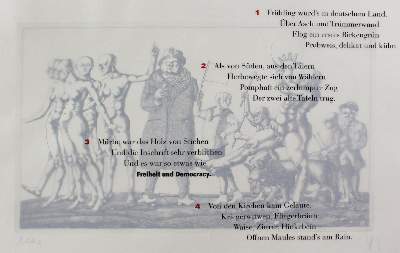 1 Frühling wurd's in deutschem Land.
Über Asch und Trümmerwand
Flog ein erstes Birkengrün
Probweis, delikat und kühn
2 Als von Süden, aus den Tälern
Herbewegte sich von Wählern
Pomphaft ein zerlumpter Zug
Der zwei alte Tafeln trug.
3 Mürbe war das Holz von Stichen
Und die Inschrift sehr verblichen
Und es war so etwas wie
Freiheit und Democracy.
4 Von den Kirchen kam Geläute.
Kriegerwitwen, Fliegerbräute
Waise, Zittrer, Hinkebein
Offnen Maules stand's am Rain.